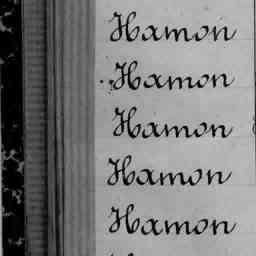 Hamon
Hamon
Hamon
Hamon
Hamon